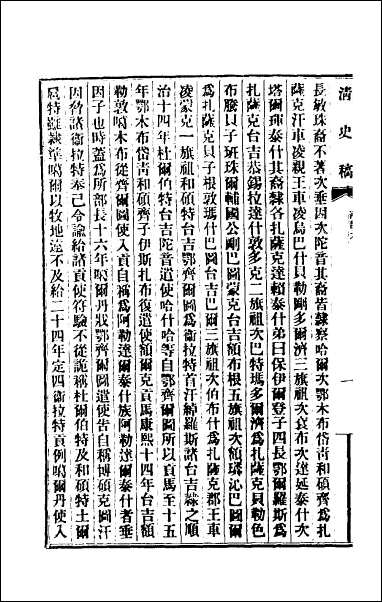 清史稿
長敏珠裔不著次垂因次陀普其裔皆隸察哈爾次鄂木布岱青和碩齊爲扎
薩克汗車凌親王車凌烏巴什貝勒剛多爾濟三旗祖次袞布次達延泰什次
塔爾琿泰什其裔隸各扎薩克達賴泰什弟曰保伊爾登子四長鄂爾羅斯爲
扎薩克台吉恭錫拉達什敦多克二旗祖次巴特瑪多爾濟爲扎薩克貝勒色
布騰貝子班珠爾輔國公剛巴圖蒙克台吉額布根五旗祖次額璘沁巴圖爾
爲扎薩克貝子根敦瑪什巴圖台吉巴爾三旗祖次伯布什爲扎薩克郡王車
凌蒙克一旗祖和碩特台吉鄂齊爾圖與土爾扈特首汗綽羅斯諸台吉隸之順
治十四年杜爾伯特台吉陀普遣使哈什哈等自鄂齊爾圖所以貢馬至十五
年鄂木布岱青和碩齊子伊斯扎布復遣使額爾克貢馬康熙十四年台吉額
勒敦噶木布從齊爾圖使入貢自稱爲阿勒達爾泰什族阿勒達爾泰什者垂
因子也時蓋爲所部長十六年噶爾丹戕鄂齊爾圖遣使告自稱博碩克圖汗
因脅諸衛拉特奉己令諭給諸貢使符驗不從詭稱杜爾伯特及和碩特土爾
扈特雖隸準噶爾以牧地遠不及給二十四年定四衛拉特貢例噶爾丹使入
一